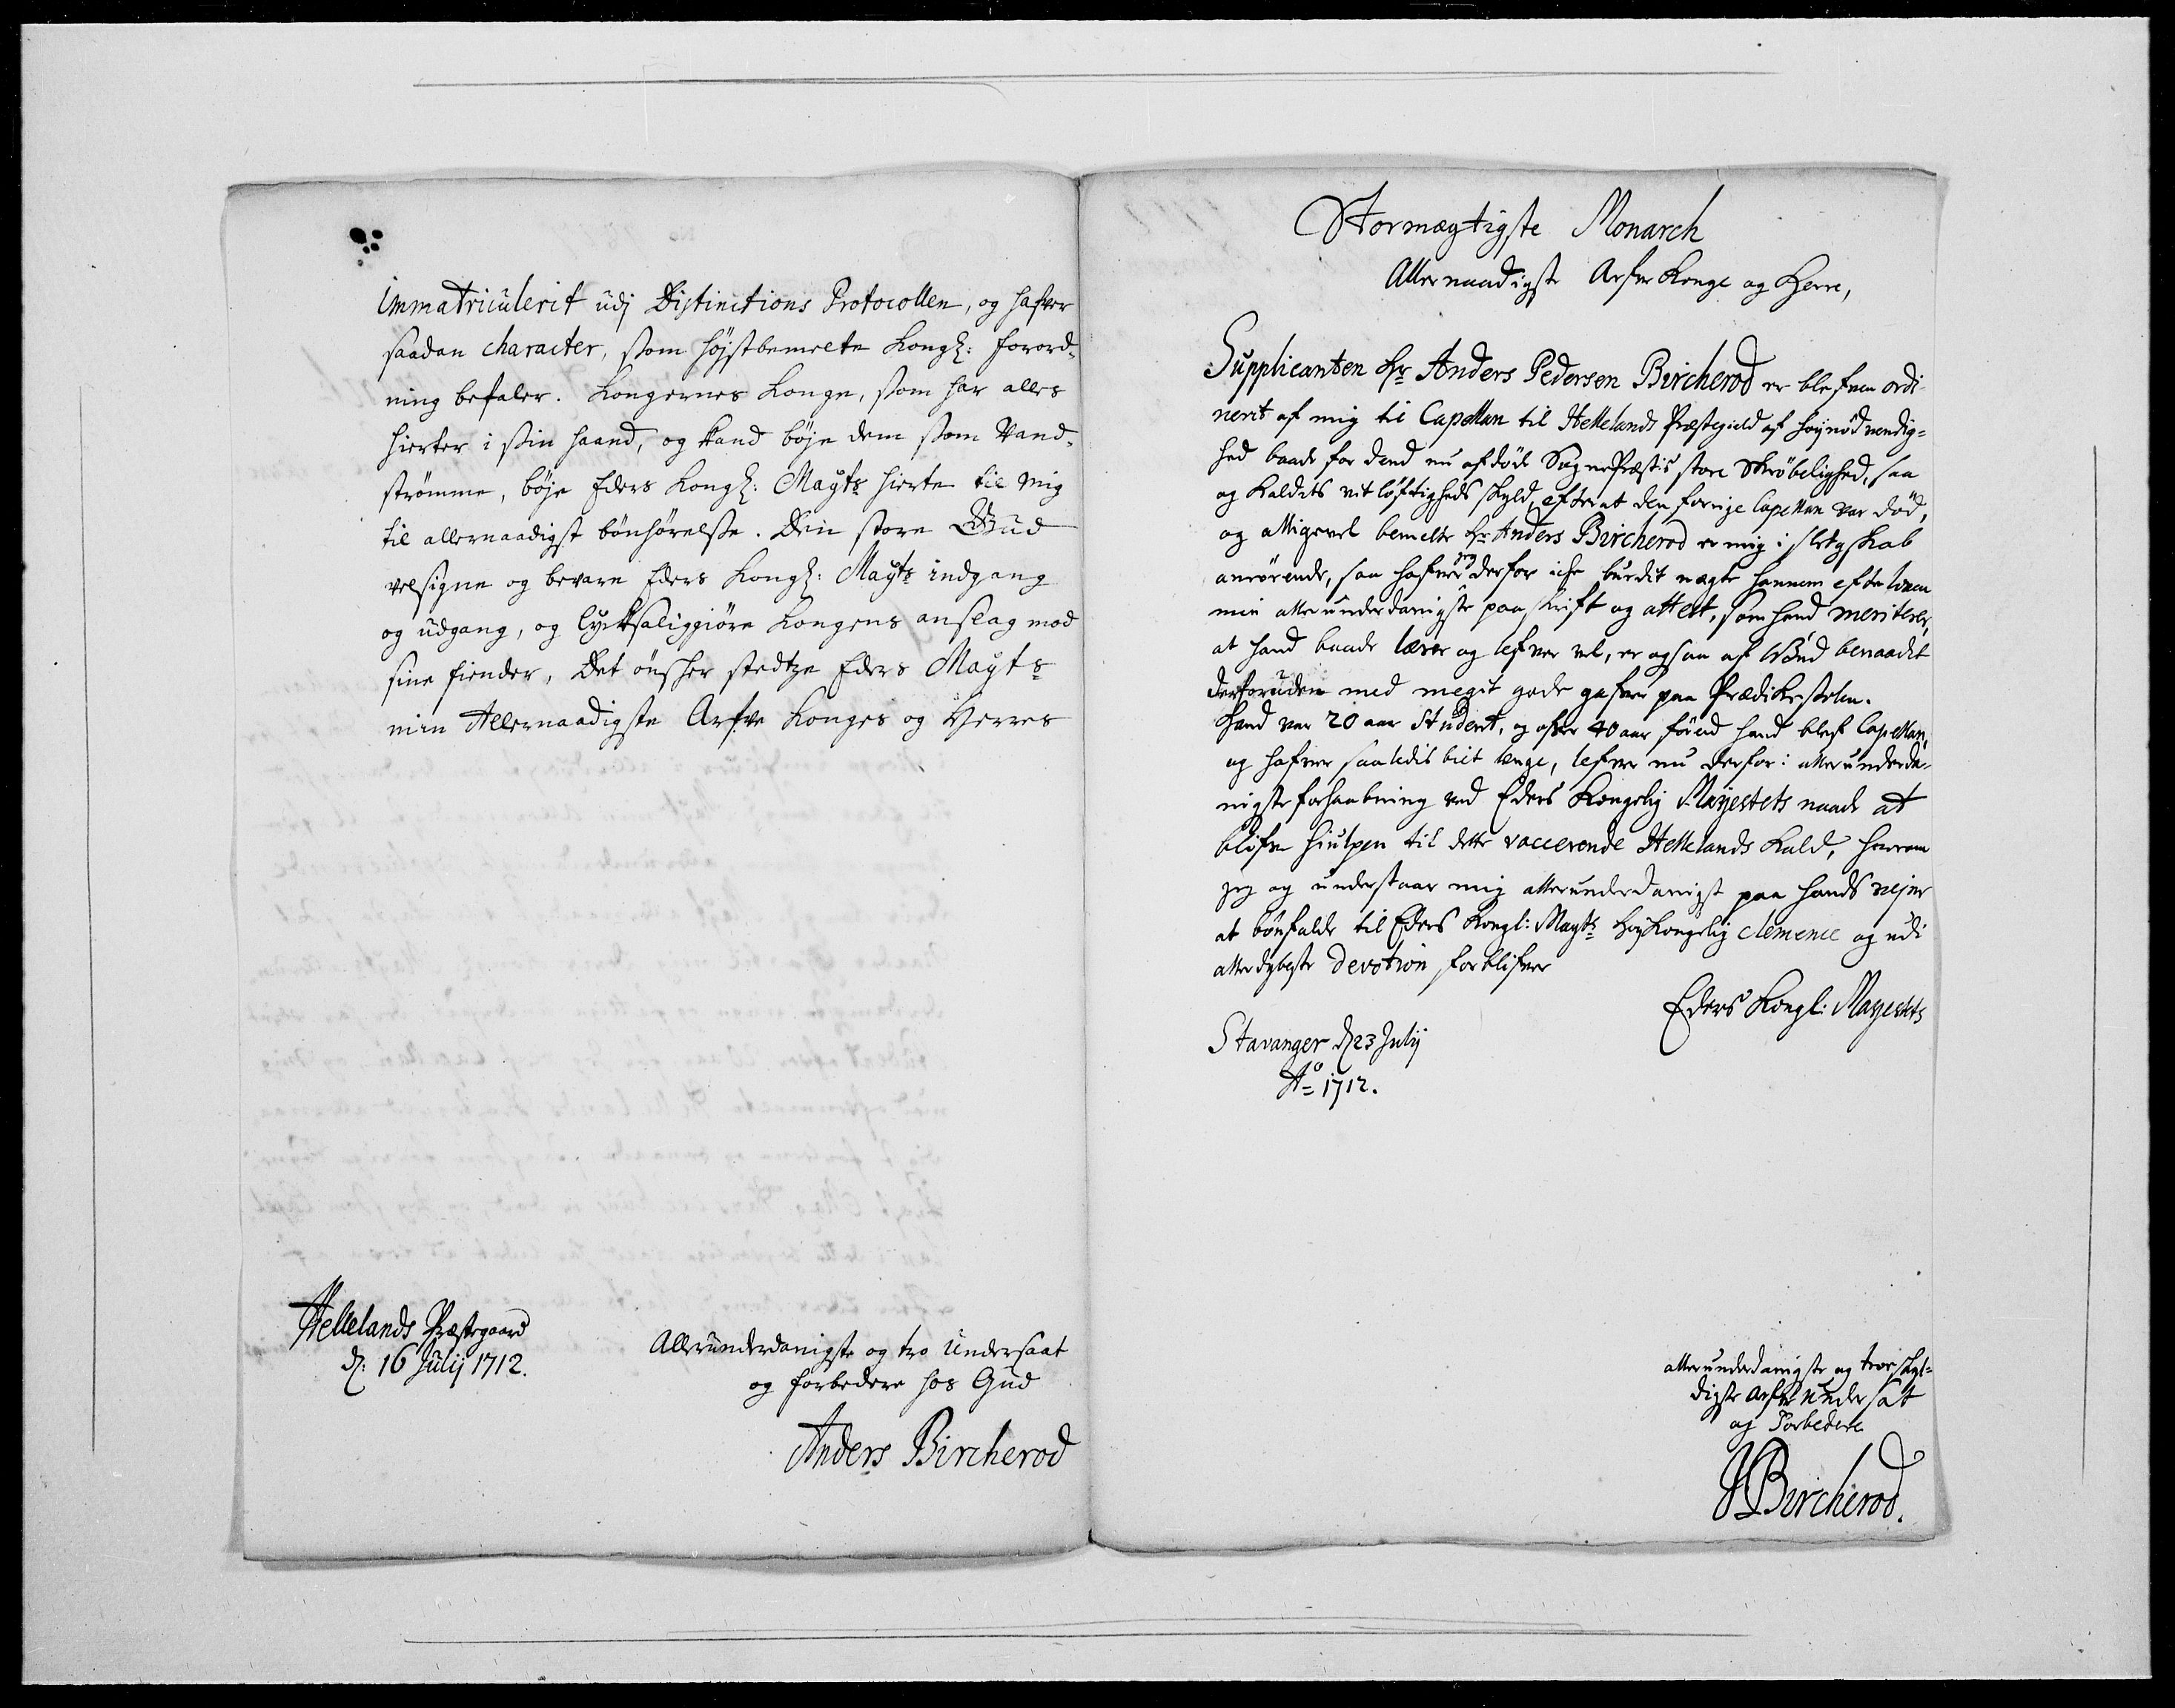 Immatriculerit udj Distinctions Protocollen, og hafver
saadan character, som højstbemelte Kongl: forord-
ning befaler. Kongernes Konge, som har alles
hierter i sin haand, og kand bøje dem som Vand-
strømme, bøje Eders Kongl: Mayts hierte til mig
til allernaadigst bønhørelse. Den store Gud
velsigne og bevare Eders Kongl: Mayts indgang
og udgang, og lycksaliggiøre Kongens anslag mod
sine fiender, Det ønsker stedtze Eders Mayts
min Allernaadigste Arfve Konges og Herres
Hellelands Præstegaard
d: 16 Julij 1712.
Allerunderdanigste og tro Undersaat
og forbedere hos Gud
Anders Bircherod
Stormægtigste Monarch
Allernaadigste Arfve Konge og Herre,
Supplicanten Hr Anders Pedersen Bircherod er blefven ordi-
nerit af mig til Capellan til Hellelands Præstegield af høynødvendig-
hed baade for dend nu afdøde SognePræstis store Skrøbelighed, saa
og Kaldets vitløftigheds skyld, efter at den forrige Capellan var død,
og alligevel bemelte Hr Anders Bircherod er mig i slegtskab
anrørende, saa hafver jeg derfor iche burdit nægte hannem efter loven
min allerunderdanigste paaskrift og attest, som hand meriterer,
at hand baade lærer og lefver vel, er ogsaa af Gud benaadit
derforuden med megit gode gafver paa Prædikestolen.
Hand var 20 aar Student, og ofver 40 aar førend hand blef Capellan,
og hafver saaledis biet lenge, lefver nu derfor i allerunderda-
nigste forhaabning ved Eders Kongelig Mayestets naade at
blifve hiulpen til dette vaccerende Hellelands Kald, hvorom
jeg og understaar mig allerunderdanigst paa hands vejne
at bønfalde til Eders Kongl: Mayts HøyKongelig clemence og udi
allerdybeste devotion forblifver
Eders Kongl: Mayestets
Stavanger d 23 Julij
Ao 1712.
allerunderdanigste og troeskyl-
digste arfve undersaat
og Forbedere
JBircherod.